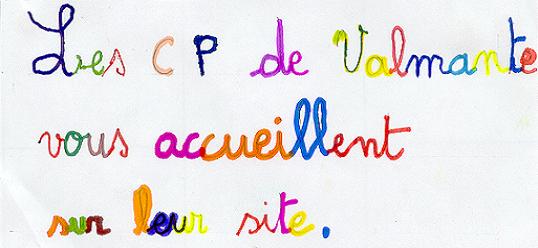 Les CP de Valmante
vous accueillent
sur leur site.